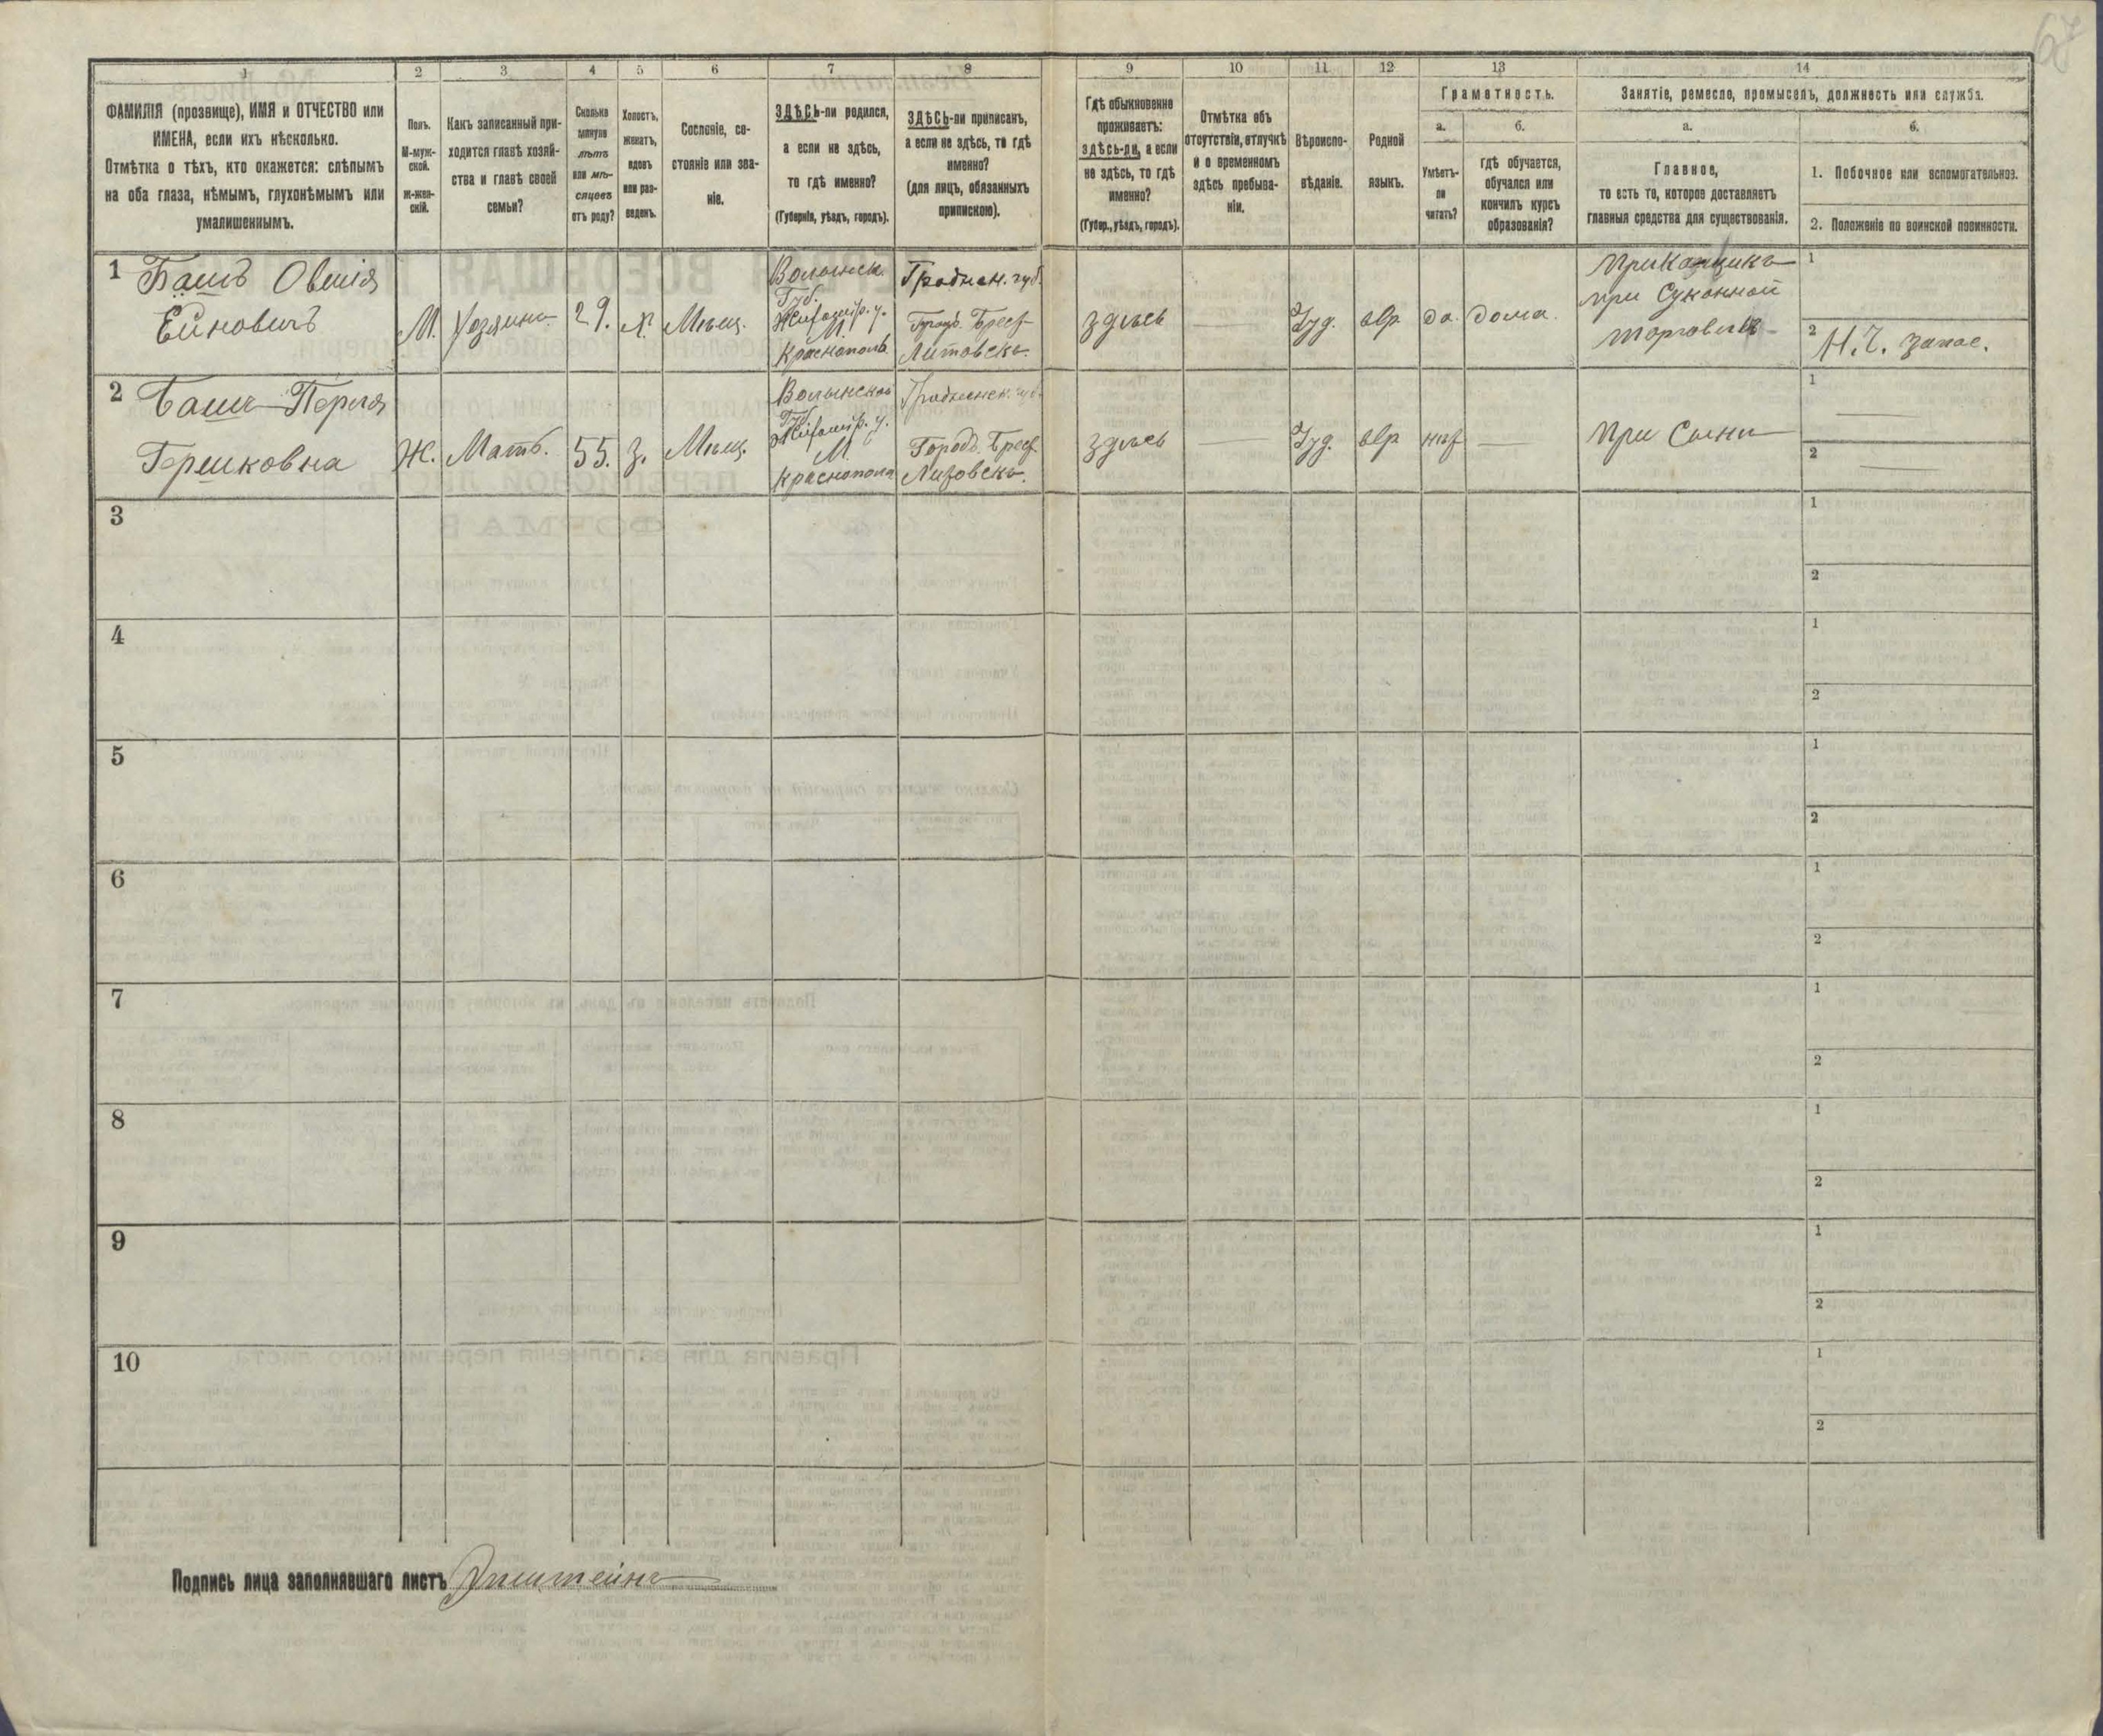 67
1
2
3
4
5
6
7
8
9
10
11
12
13
14
ФАМИЛІЯ (прозвище), ИМЯ и ОТЧЕСТВО или
ИМЕНА, если ихъ нѣсколько.
Отмѣтка о тѣхъ, кто окажется: слѣпымъ
на оба глаза, нѣмымъ, глухонѣмымъ или
умалишеннымъ.
Полъ.
М-муж-
ской.
ж-жен-
скій.
Какъ записанный при-
ходится главѣ хозяй-
ства и главѣ своей
семьи?
Сколько
минуло
лѣтъ
или мѣ-
сяцевъ
отъ роду?
Холостъ,
женатъ,
вдовъ
или раз-
веденъ.
Сословіе, со-
стояніе или зва-
ніе.
ЗДѢСЬ-ли родился,
а если не здѣсь,
то гдѣ именно?
(Губернія, уѣздъ, городъ).
ЗДѢСЬ-ли приписанъ,
а если не здѣсь, то гдѣ
именно?
(для лицъ, обязанныхъ
припискою).
Гдѣ обыкновенно
проживаетъ:
здѣсь-ли, а если
не здѣсь, то гдѣ
именно?
(Губер., уѣздъ, городъ).
Отмѣтка объ
отсутствіи, отлучкѣ
и о временномъ
здѣсь пребыва-
ніи.
Вѣроиспо-
вѣданіе.
Родной
языкъ.
Грамотность.
а.
Умѣетъ-
ли
читать?
б.
гдѣ обучается,
обучался или
кончилъ курсъ
образованія?
Занятіе, ремесло, промыселъ, должность или служба.
а.
Главное,
то есть то, которое доставляетъ
главныя средства для существованія.
б.
1. Побочное или вспомогательное.
2. Положеніе по воинской повинности.
1
Башъ Овшія
Ейновичъ
М.
Хозяинъ
29.
х.
Мѣщ.
Волынск.
Губ.
Житомір. у.
М.
Краснополь
Гроднен. губ.
Городъ Брест-
Литовскъ.
здѣсь
Іуд.
евр
да.
дома.
Приказчикъ
при Суконной
торговлѣ
1
2
Н. Ч. запас.
2
Башъ Перля
Гершковна
Ж.
Мать.
55.
З.
Мѣщ.
Волынской
Губ.
Житомір. у.
М.
Краснополь
Гродненск. губ.
Городъ Брест
Литовскъ.
здѣсь
Іуд.
евр
нит
При Сынѣ
1
2
3
1
2
4
1
2
5
1
2
6
1
2
7
1
2
8
1
2
9
1
2
10
1
2
Подпись лица заполнявшаго листъ Эпштейнъ